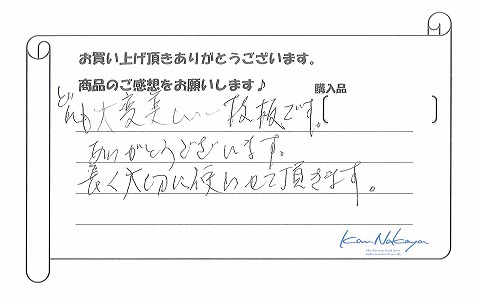 お買い上げ頂きありがとうございます。
商品のご感想をお願いします♪ 購入品
どれも大変美しい一枚板です。
ありがとうございます。
長く大切に使わせて頂きます。
Kan Nakaya